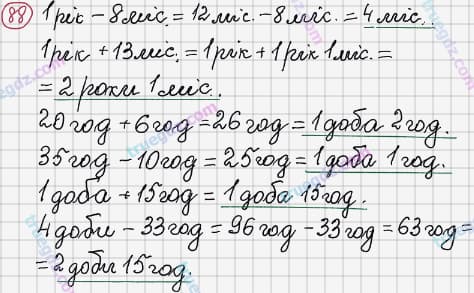 88 1 рік – 8 міс. = 12 міс. – 8 міс. = 4 міс.
1 рік + 13 міс. = 1 рік + 1 рік 1 міс. =
= 2 роки 1 міс.
20 год + 6 год = 26 год = 1 доба 2 год.
35 год – 10 год = 25 год = 1 доба 1 год.
1 доба + 15 год = 1 доба 15 год.
4 доби – 33 год = 96 год – 33 год = 63 год =
= 2 доби 15 год.